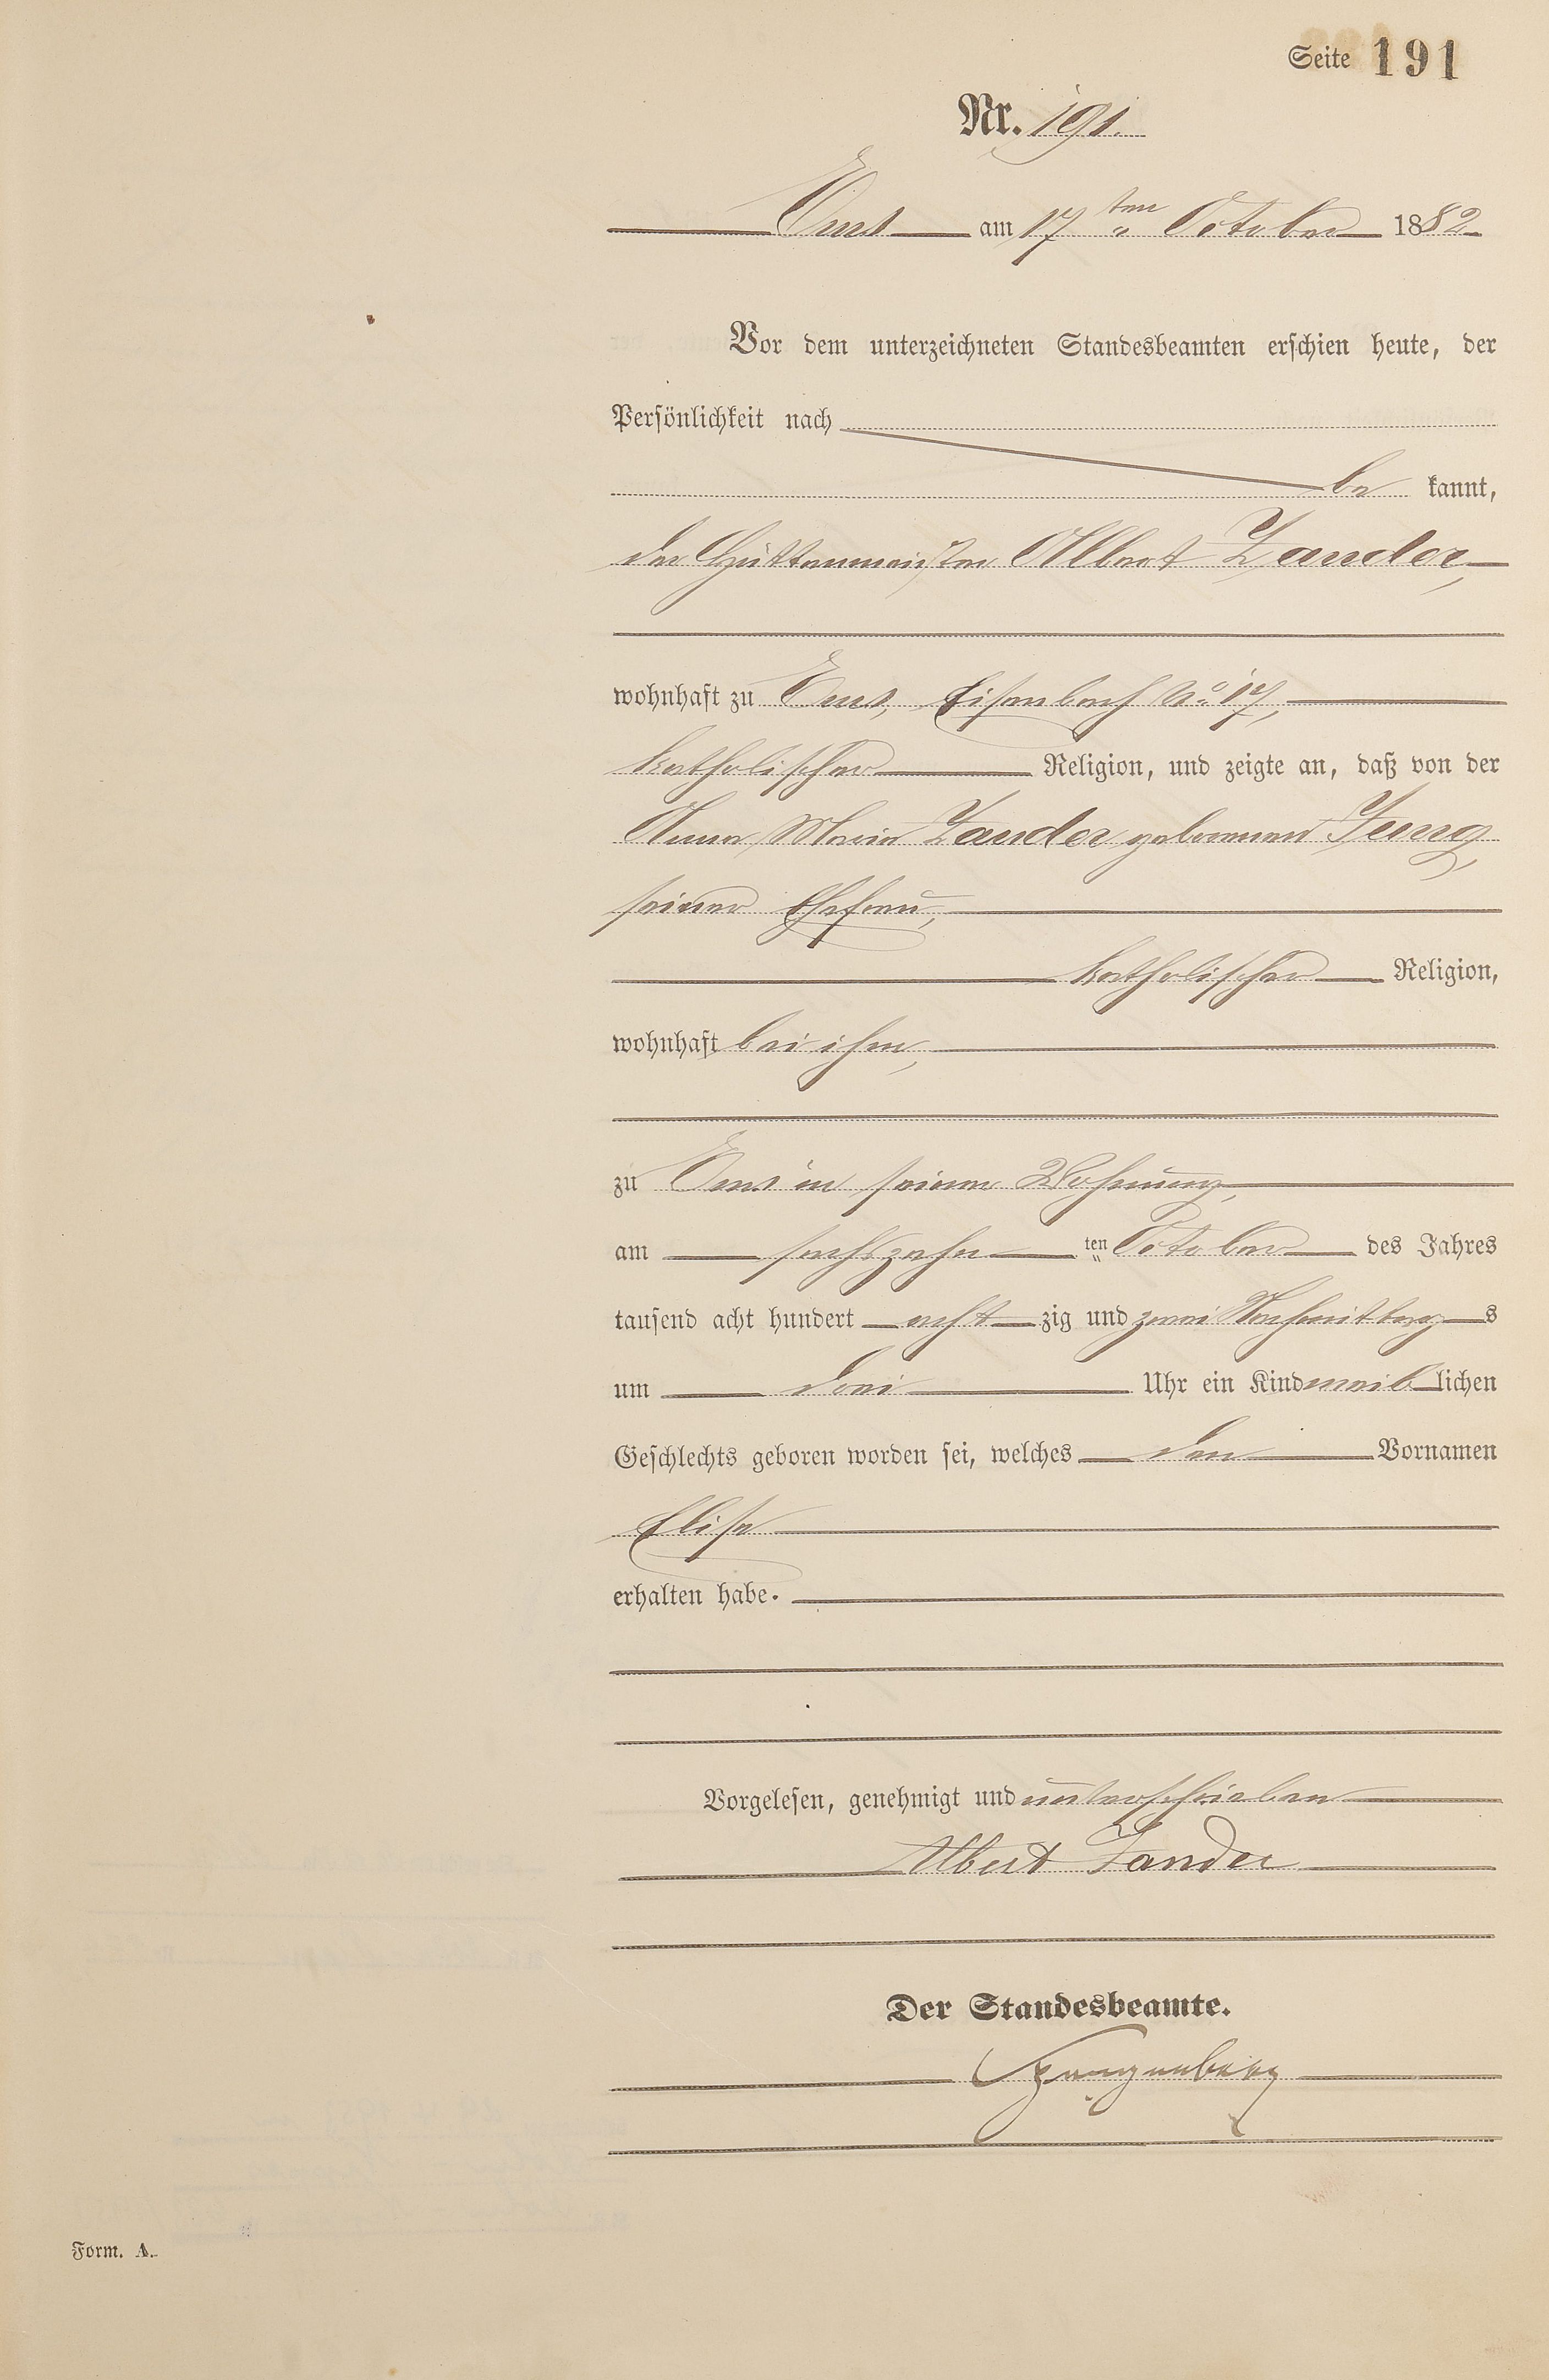 Seite 191
Nr. 191.
Ems am 17ten October 1882
Vor dem unterzeichneten Standesbeamten erschien heute, der
Persönlichkeit nach
be kannt,
der Hüttenmeister Albert Zander,
wohnhaft zu Ems, Eisenbach No 17,
katholischer Religion, und zeigte an, daß von der
Anna Maria Zander geborenen Jung,
seiner Ehefrau,
katholischer Religion,
wohnhaft bei ihm,
zu Ems in seiner Wohnung,
am sechszehn ten October des Jahres
tausend acht hundert acht zig und zwei Nachmittag s
um drei Uhr ein Kind weib lichen
Geschlechts geboren worden sei, welches den Vornamen
Elise
erhalten habe.
Vorgelesen, genehmigt und unterschrieben
Albert Zander
Der Standesbeamte.
Form. A.